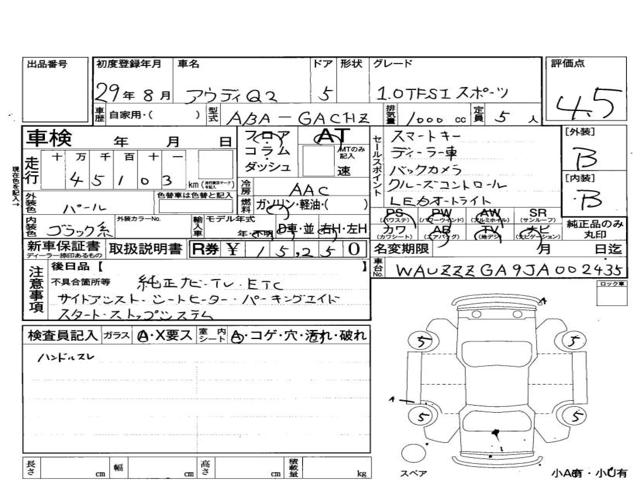 出品番号 初度登録年月 車名 ドア 形状 グレード 評価点
29年8月 アウディQ2 5 1.0TFSI スポーツ 4.5
車歴 自家用・( ) 型式 ABA-GACHZ 排気量 1000 cc 定員 5 人
車検 年 月 日 フロア コラム ダッシュ AT MTのみ記入 速
セールスポイント スマートキー
ディーラー車
バックカメラ
クルーズコントロール
LEDオートライト
[外装] B
[内装] B
現在色を記入→
走行 十 万 千 百 十 一
45103 km
冷房 AAC
外装色 パール 色替車は色替と記入
燃料 ガソリン・軽油・( )
内装色 ブラック系 外装カラーNo. 輸入車 モデル年式 年・不明 D車・並 右H・左H
PS PW AW SR
(パワステ) (パワーウインド) (アルミホイール) (サンルーフ)
カワ AB TV ナビ
(カワシート) (エアバッグ)
純正品のみ丸印
新車保証書 取扱説明書 R券 ¥ 15,250 名変期限 月 日迄
ディーラー捺印あるもの
車台No. WAUZZZGA9JA002435
注意事項 後日品 [ ]
不具合箇所等 純正ナビ・TV・ETC
サイドアシスト・シートヒーター・パーキングエイド
スタート・ストップシステム
ロック車
検査員記入 ガラス A・X要ス 室内シート A・コゲ・穴・汚れ・破れ
ハンドルスレ
5 5
1
5 5
スペア
小A有・小U有
長さ cm 幅 cm 高さ cm 積載量 kg